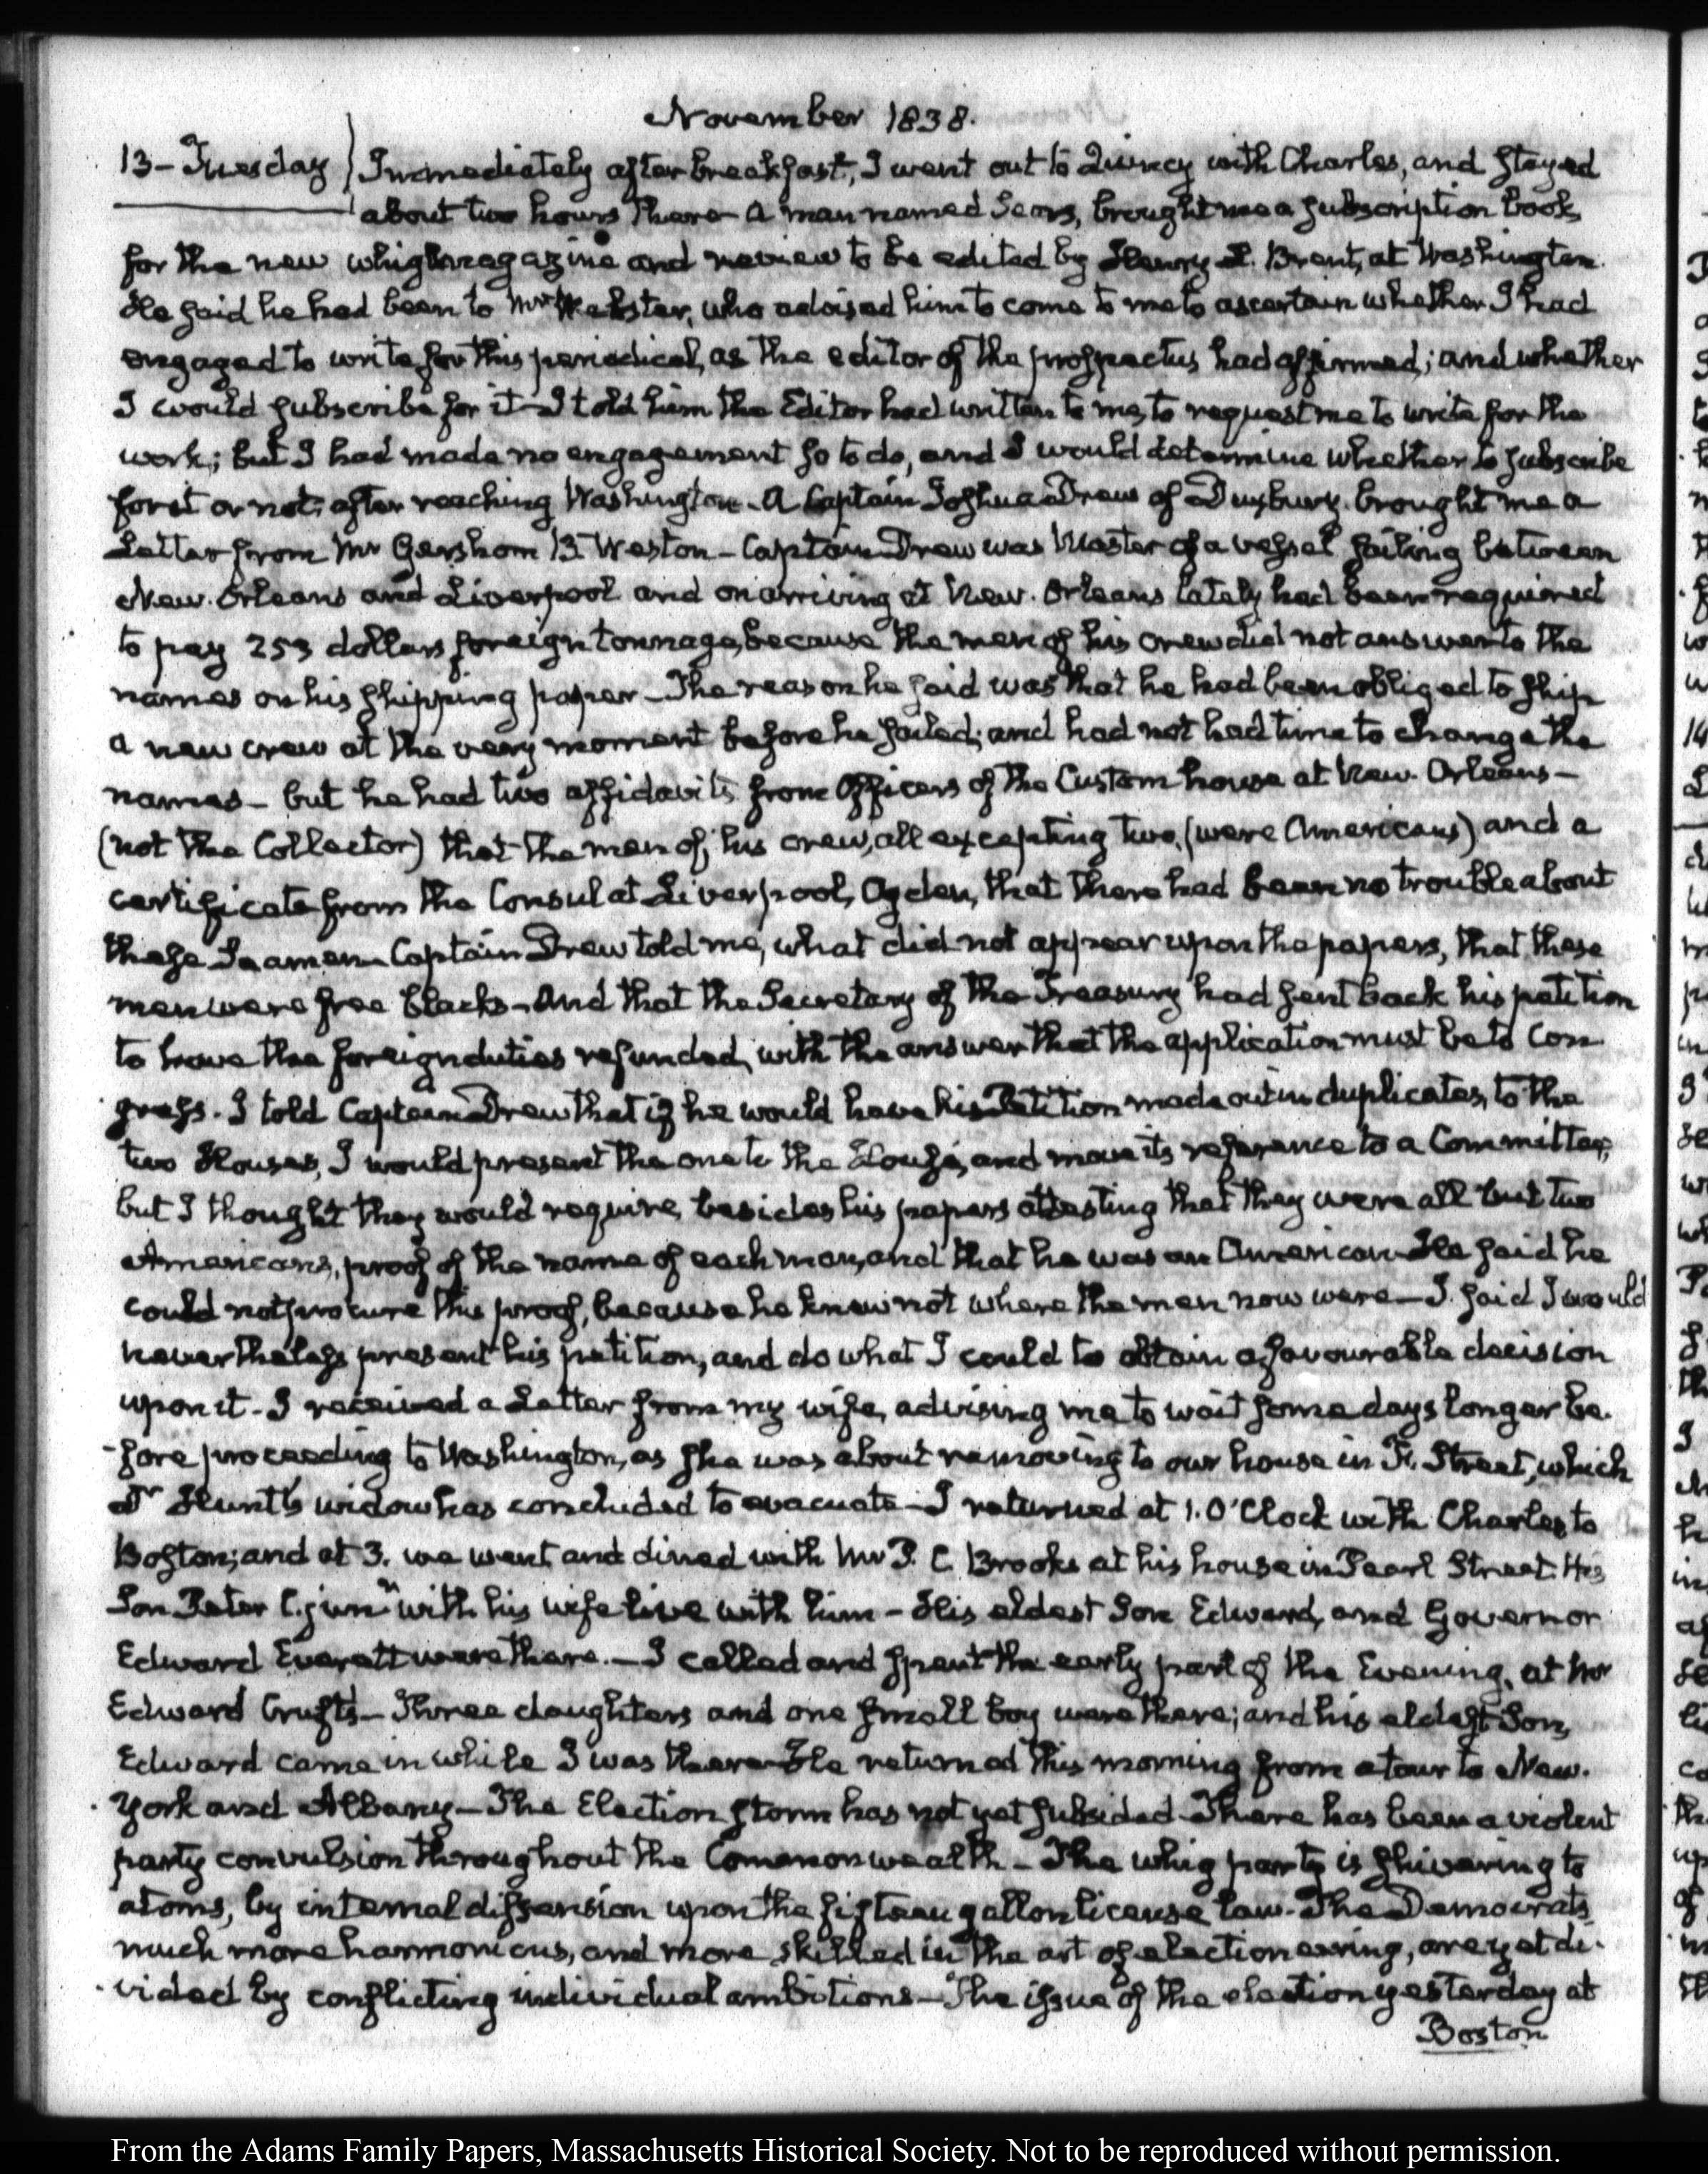 November 1838.
13 - Tuesday } Immediately after breakfast, I went out to Quincy with Charles, and stayed
about two hours there - A man named Sears, brought me a subscription book
for the new whig magazine and review to be edited by Henry L. Brent, at Washington.
He said he had been to Mr. Webster, who advised him to come to me to ascertain whether I had
engaged to write for this periodical, as the editor of the prospectus had affirmed; and whether
I would subscribe for it - I told him the Editor had written to me, to request me to write for the
work; but I had made no engagement so to do, and I would determine whether to subscribe
for it or not, after reaching Washington - A Captain Joshua Drew of Duxbury brought me a
Letter from Mr Gershom B Weston - Captain Drew was Master of a vessel sailing between
New. Orleans and Liverpool and on arriving at New. Orleans lately had been required
to pay 253 dollars foreign tonnage, because the men of his crew did not answer to the
names on his shipping paper - The reason he said was that he had been obliged to ship
a new crew at the very moment before he sailed; and had not had time to change the
names - but he had two affidavits from Officers of the Custom house at New. Orleans -
(not the Collector) that the men of, his crew, all excepting two, (were Americans) and a
certificate from the Consul at Liverpool, Ogden, that there had been no trouble about
these Seamen - Captain Drew told me, what did not appear upon the papers, that these
men were free blacks - And that the Secretary of the Treasury had sent back his petition
to have the foreign duties refunded, with the answer that the application must be to Con
gress. I told Captain Drew that if he would have his Petition made out in duplicates, to the
two Houses, I would present the one to the House, and move its reference to a Committee;
but I thought they would require, besides his papers attesting that they were all but two
Americans, proof of the name of each man, and that he was an American - He said he
could not procure this proof, because he knew not where the men now were - I said I would
nevertheless present his petition, and do what I could to obtain a favourable decision
upon it - I received a Letter from my wife, advising me to wait some days longer be-
-fore proceeding to Washington, as she was about removing to our house in F. Street, which
Dr Hunt's widow has concluded to evacuate - I returned at 1. O'Clock with Charles to
Boston; and at 3. we went and dined with Mr P. C Brooks at his house in Pearl Street. His
Son Peter C. junr with his wife live with him - His eldest Son Edward, and Governor
Edward Everett were there. - I called and spent the early part of the Evening, at Mr
Edward Crufts - Three daughters and one small boy were there; and his eldest Son,
Edward came in while I was there - He returned this morning from a tour to New.
York and Albany - The Election storm has not yet subsided - There has been a violent
party convulsion throughout the Commonwealth - The whig party is shivering to
atoms, by internal dissension upon the fifteen gallon license law - The Democrats
much more harmonious, and more skilled in the art of electioneering, are yet di-
vided by conflicting individual ambitions - The issue of the election yesterday at
Boston
From the Adams Family Papers, Massachusetts Historical Society. Not to be reproduced without permission.